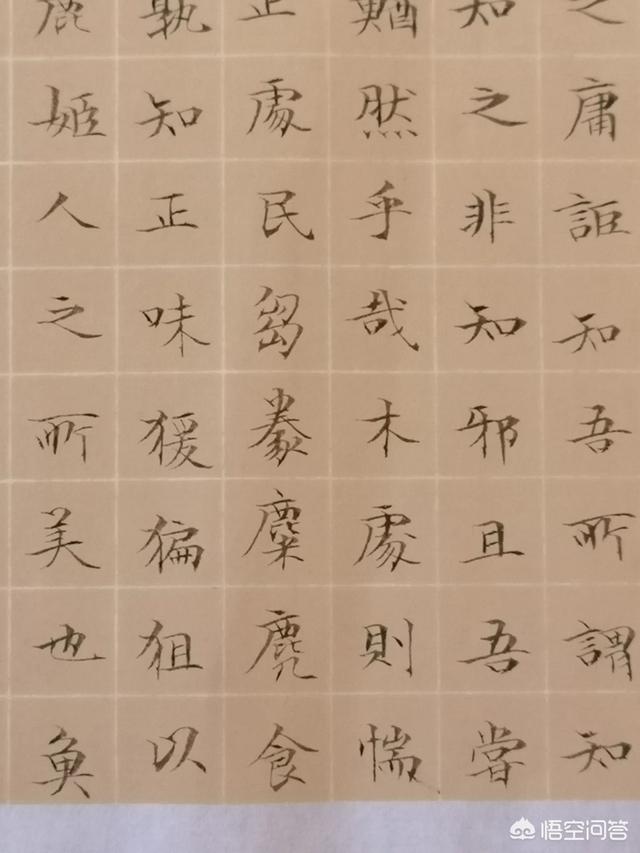 之庸詎知吾所謂知
知之非知邪且吾嘗
鰌然乎哉木處則惴
正處民芻豢麋鹿食
孰知正味猨猵狙以
姬人之所美也魚
悟空问答